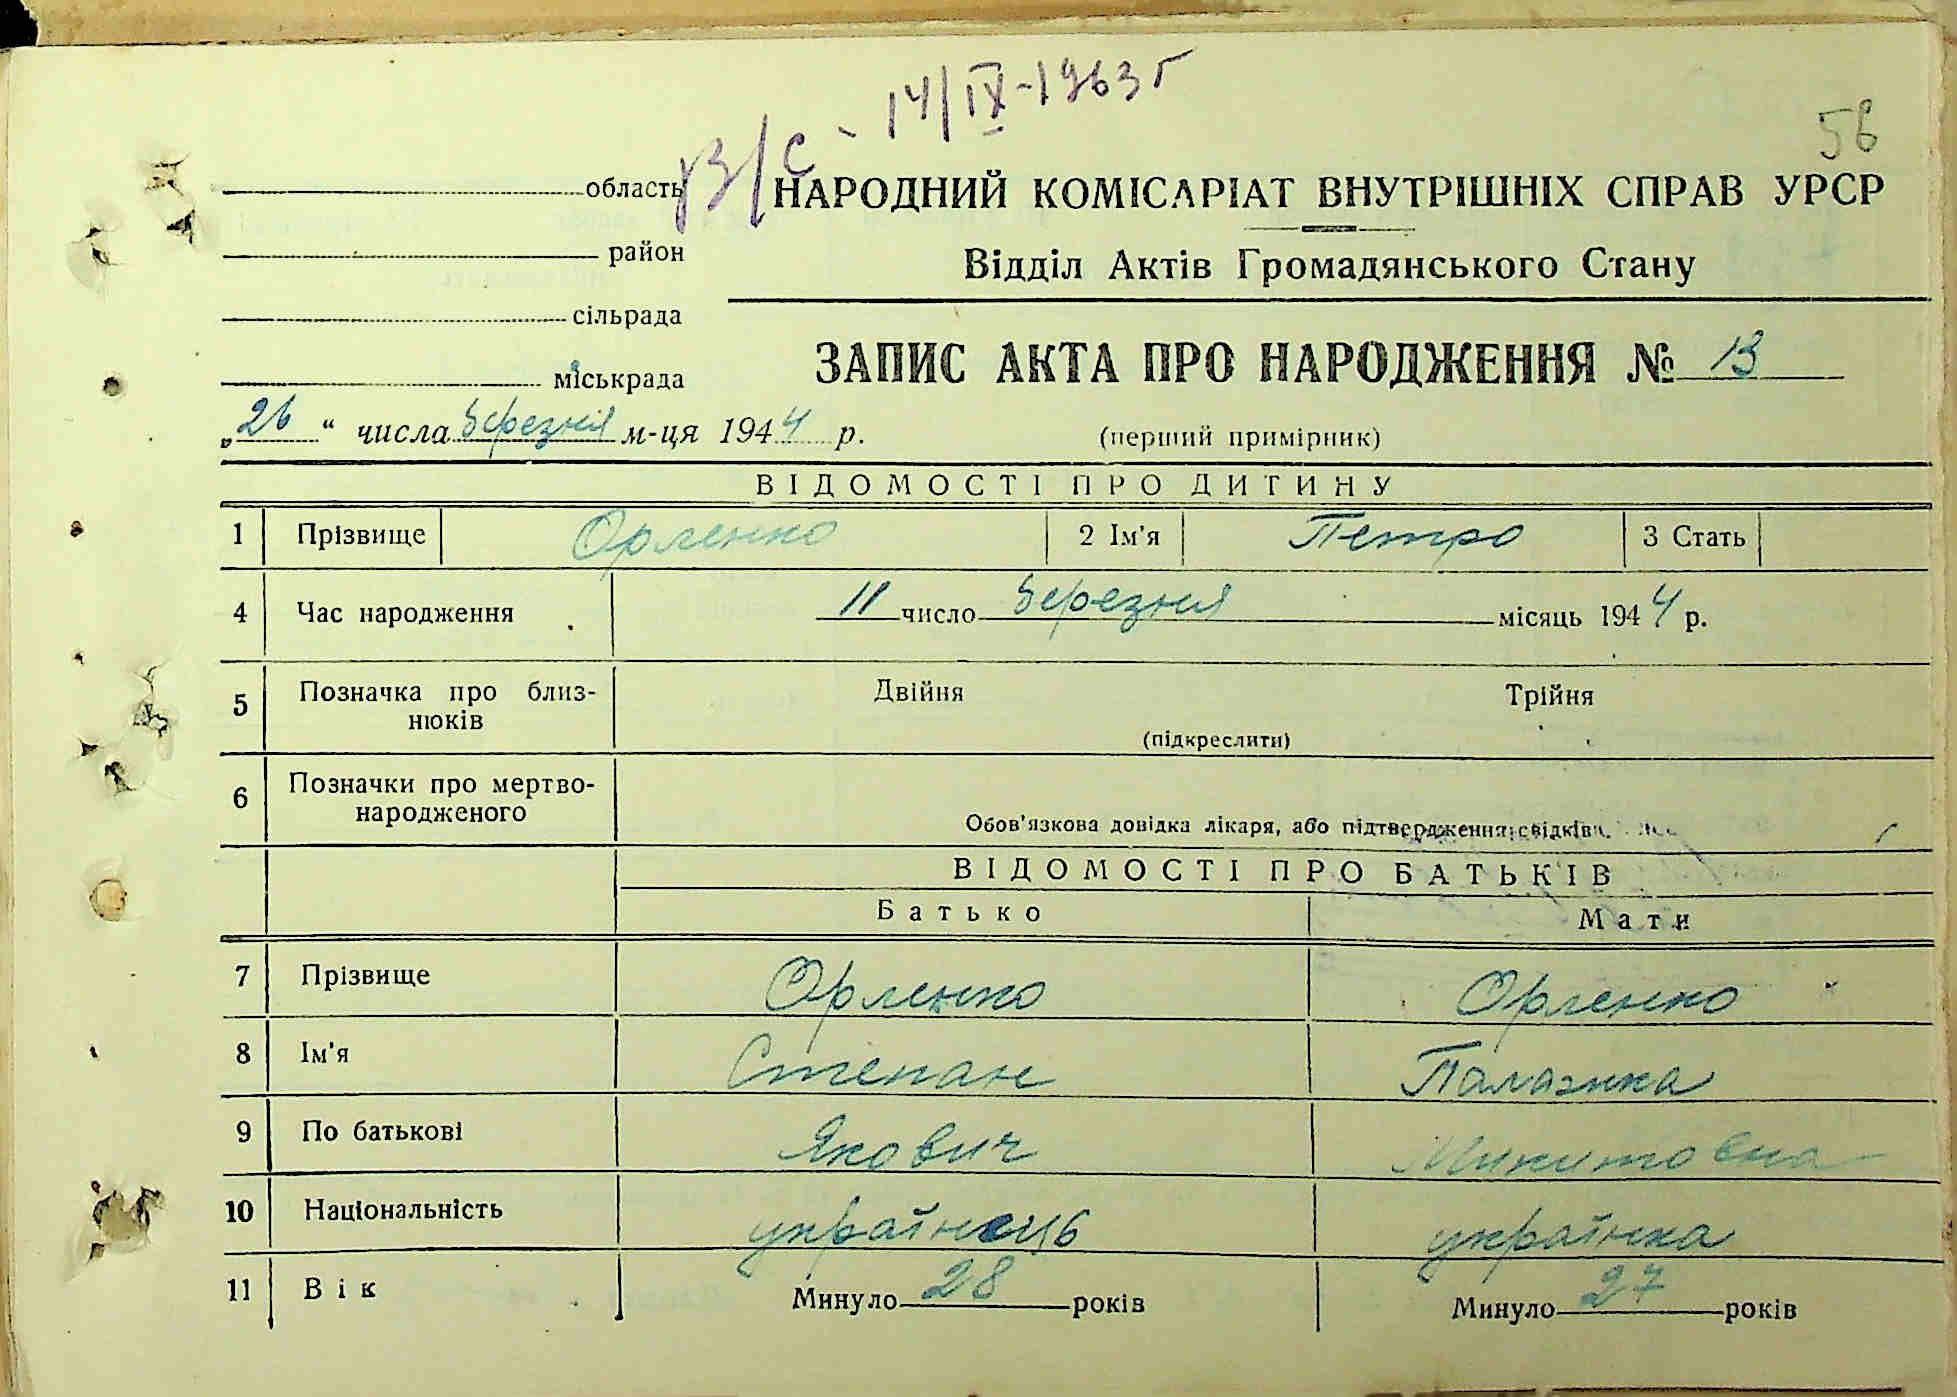 В/С - 14/IX-1963 г
56
область
район
сільрада
міськрада
НАРОДНИЙ КОМІСАРІАТ ВНУТРІШНІХ СПРАВ УРСР
Відділ Актів Громадянського Стану
ЗАПИС АКТА ПРО НАРОДЖЕННЯ № 13
„26“ числа березня м-ця 1944 р.
(перший примірник)
ВІДОМОСТІ ПРО ДИТИНУ
1 Прізвище Орленко 2 Ім'я Петро 3 Стать
4 Час народження 11 число березня місяць 1944 р.
5 Позначка про близ-
нюків
Двійня Трійня
(підкреслити)
6 Позначки про мертво-
народженого
Обов'язкова довідка лікаря, або підтвердження свідків.
ВІДОМОСТІ ПРО БАТЬКІВ
Батько Мати
7 Прізвище Орленко Орленко
8 Ім'я Степан Палажка
9 По батькові Якович Микитовна
10 Національність українець українка
11 Вік Минуло 28 років Минуло 27 років